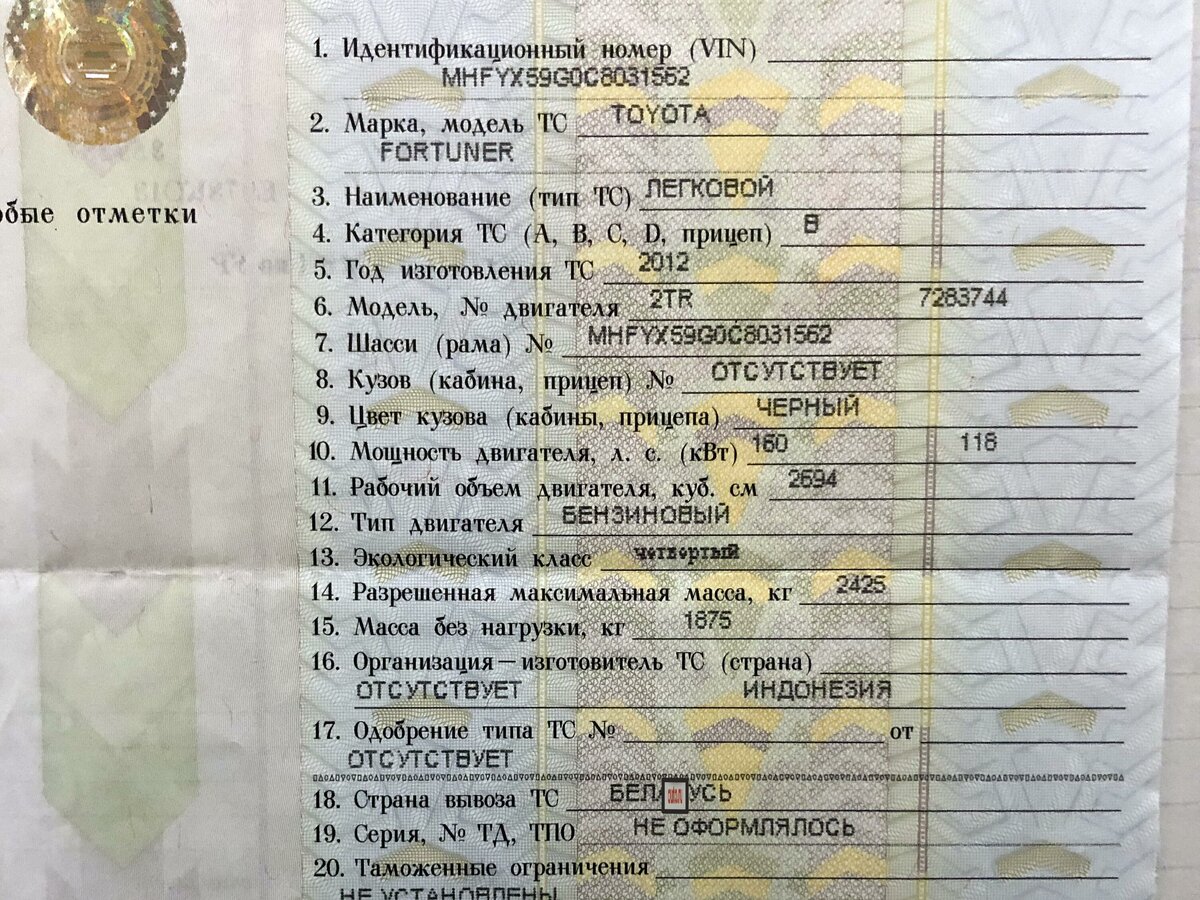 обые отметки
1. Идентификационный номер (VIN)
MHFYX59G0C8031562
2. Марка, модель ТС TOYOTA
FORTUNER
3. Наименование (тип ТС) ЛЕГКОВОЙ
4. Категория ТС (A, B, C, D, прицеп) B
5. Год изготовления ТС 2012
6. Модель, № двигателя 2TR 7283744
7. Шасси (рама) № MHFYX59G0C8031562
8. Кузов (кабина, прицеп) № ОТСУТСТВУЕТ
9. Цвет кузова (кабины, прицепа) ЧЕРНЫЙ
10. Мощность двигателя, л. с. (кВт) 160 118
11. Рабочий объем двигателя, куб. см 2694
12. Тип двигателя БЕНЗИНОВЫЙ
13. Экологический класс четвертый
14. Разрешенная максимальная масса, кг 2425
15. Масса без нагрузки, кг 1875
16. Организация — изготовитель ТС (страна)
ОТСУТСТВУЕТ ИНДОНЕЗИЯ
17. Одобрение типа ТС № от
ОТСУТСТВУЕТ
18. Страна вывоза ТС
19. Серия, № ТД, ТПО НЕ ОФОРМЛЯЛОСЬ
20. Таможенные ограничения
НЕ УСТАНОВЛЕНЫ